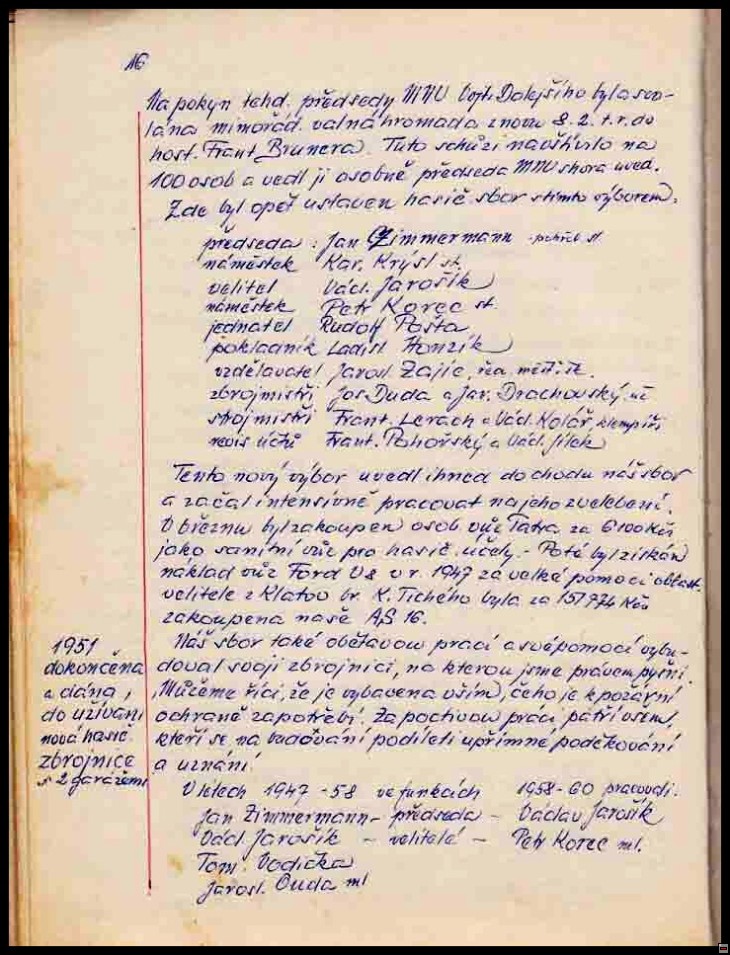 16
Na pokyn tehd. předsedy MNV Vojt. Dolejšího byla svo-
lána mimořád. valná hromada znovu 8. 2. t. r. do
host. Frant Brunera. Tuto schůzi navštívilo na
100 osob a vedl ji osobně předseda MNV shora uved.
Zde byl opět ustaven hasič sbor s tímto výborem:
předseda : Jan Zimmermann st.
náměstek Kar. Krýsl st.
velitel Václ. Jarošík
náměstek Petr Korec st.
jednatel Rudolf Pošta
pokladník Ladisl Honzík
vzdělavatel Jarosl. Zajíc, řea. měšť. šk.
zbrojmistři Jos Duda a Jar. Drachovský. uč
strojmistři Frant. Lerach a Václ. Kolář, klempíři
revis účtů Frant. Pohořský a Václ. Jílek
Tento nový výbor uvedl ihned do chodu náš sbor
a začal intensivně pracovat na jeho zvelebení.
V březnu byl zakoupen osob vůz Tatra za 6100 Kčs
jako sanitní vůz pro hasič. účely. - Poté byl získán
náklad vůz Ford V8 v r. 1947 za velké pomoci oblast.
velitele z Klatov br. K. Tichého byla za 157 974 Kčs
zakoupena naše AS 16.
Náš sbor také obětavou prací a svépomocí vybu-
doval svoji zbrojnici, na kterou jsme právem pyšni.
Můžeme říci, že je vybavena vším, čeho je k požární
ochraně zapotřebí. Za poctivou práci patří všem,
kteří se na budování podíleli upřímné poděkování
a uznání.
1951
dokončena
a dána,
do užívání
nová hasič.
zbrojnice
s 2 garážemi
V létech 1947 - 58 ve funkcích 1958 - 60 pracovali.
Jan Zimmermann - předseda - Václav Jarošík
Václ Jarošík - velitelé - Petr Korec ml.
Tom. Vodička
Jarosl. Duda ml